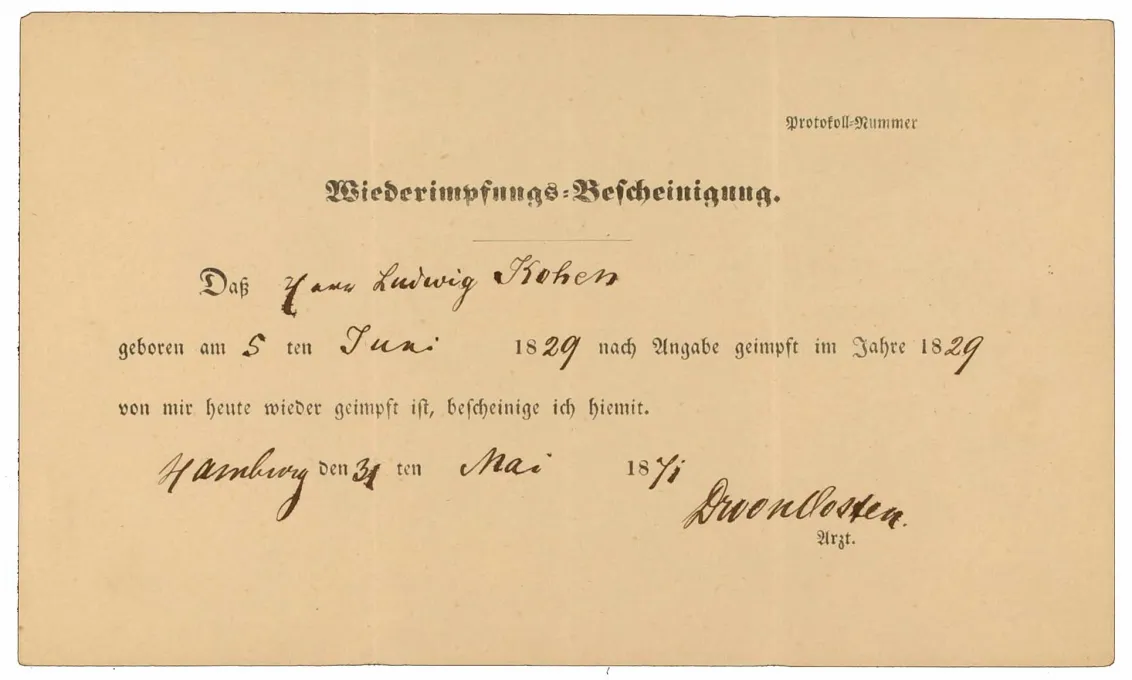 Protokoll-Nummer
Wiederimpfungs-Bescheinigung.
Daß Herr Ludwig Kohen
geboren am 5 ten Juni 1829 nach Angabe geimpft im Jahre 1829
von mir heute wieder geimpft ist, bescheinige ich hiemit.
Hamburg den 31 ten Mai 1871
Dr von Oosten.
Arzt.